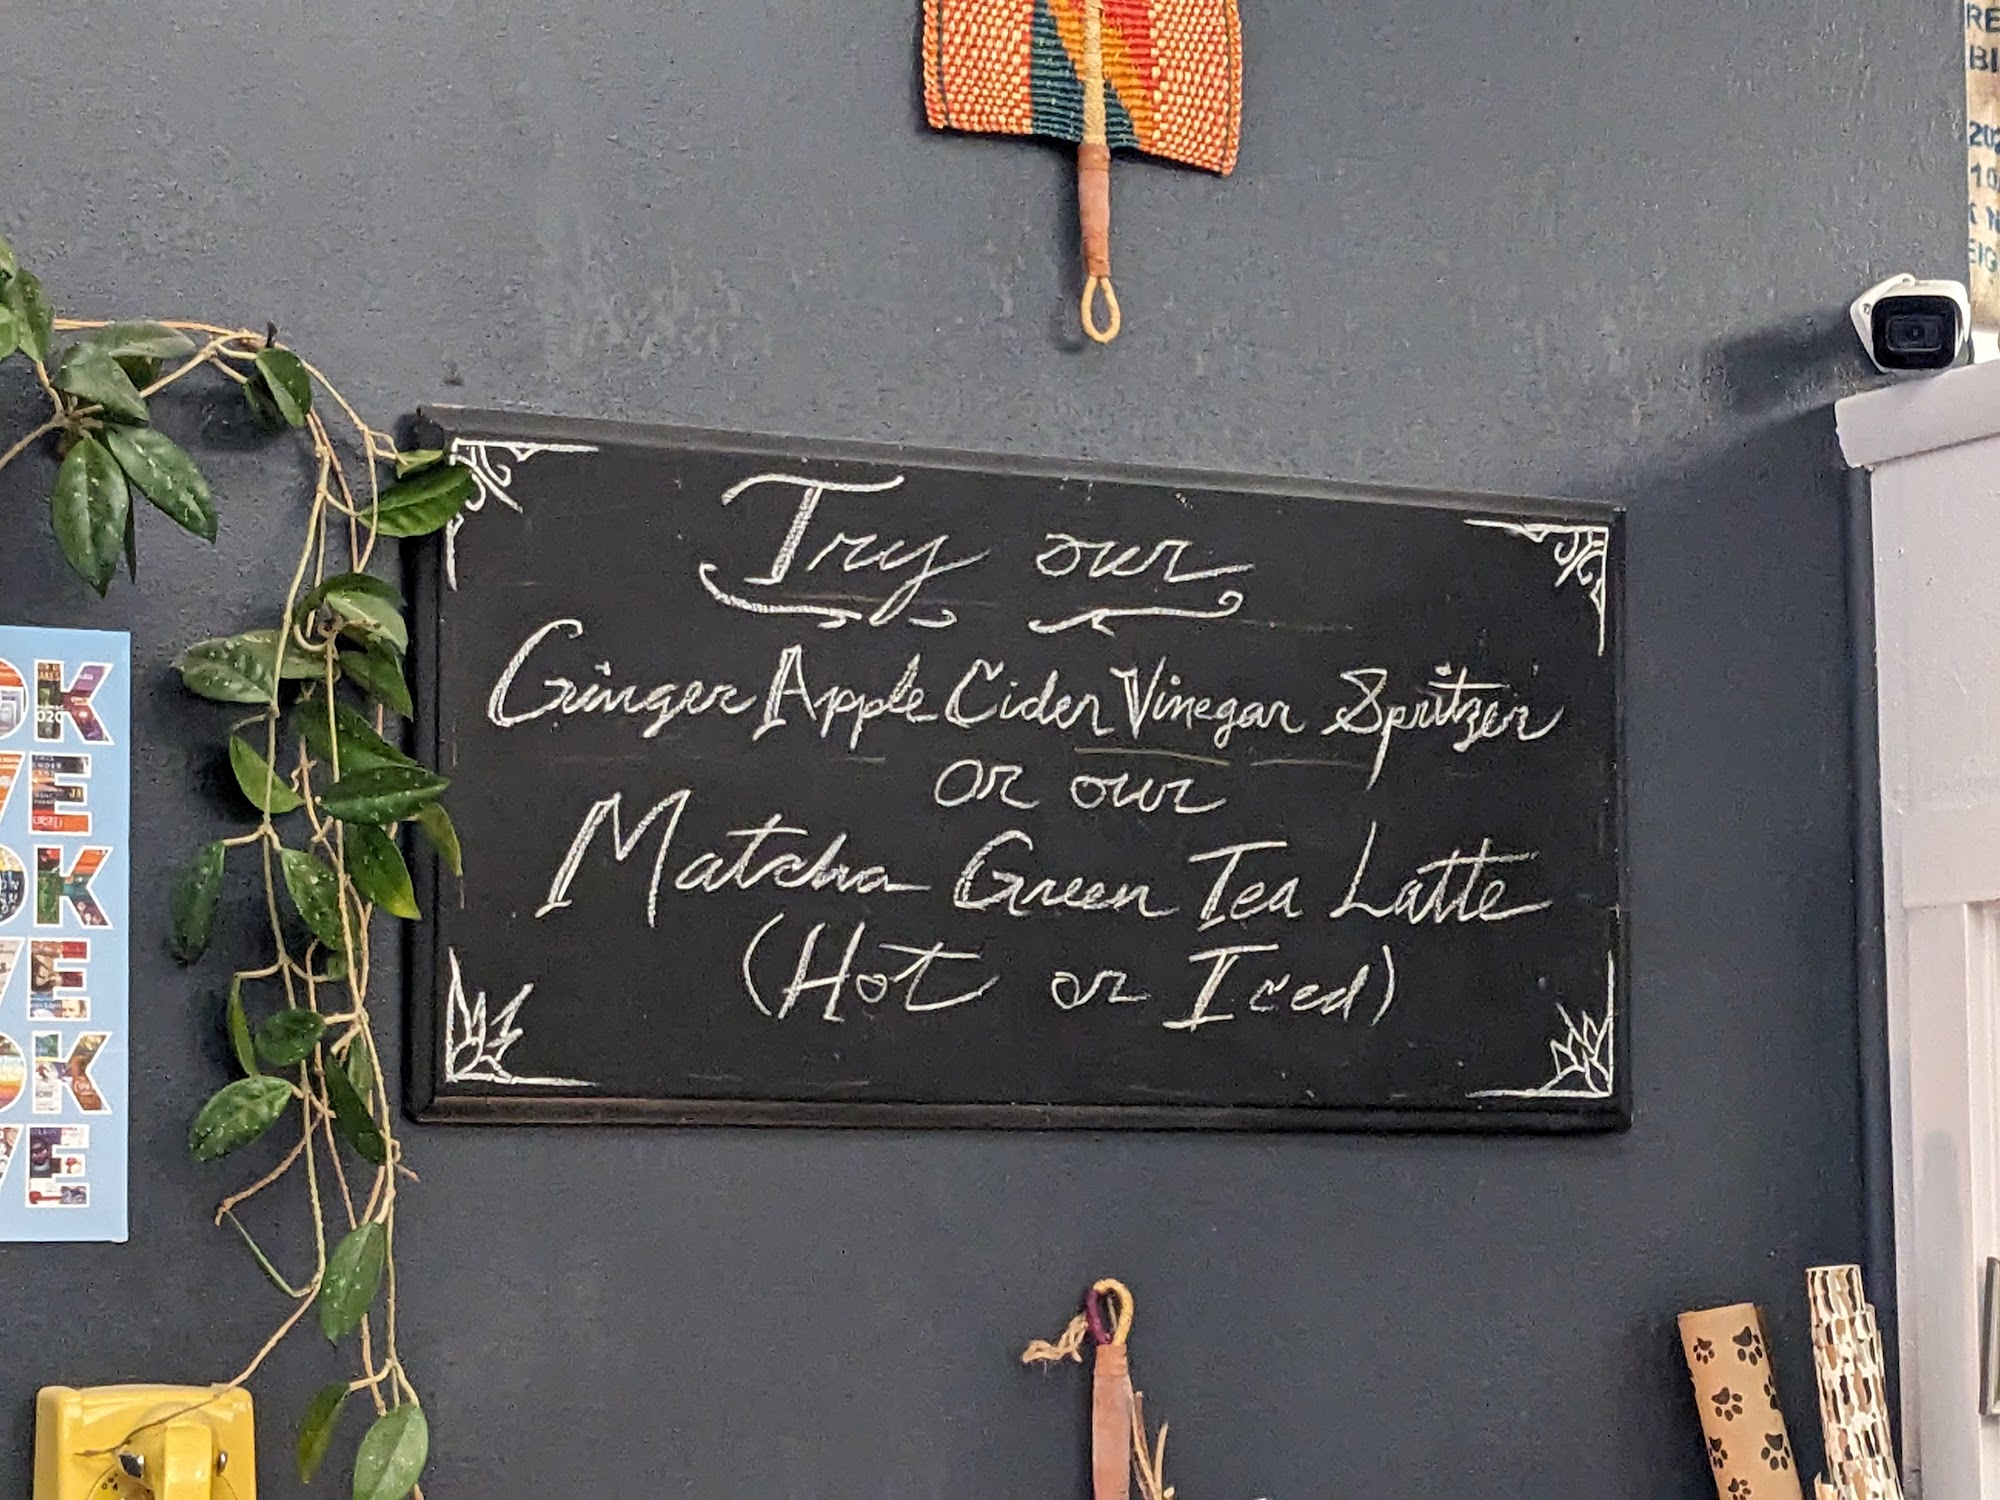 Try our
Ginger Apple Cider Vinegar Spritzer
or our
Matcha Green Tea Latte
(Hot or Iced)
OK
VE
OK
VE
OK
VE
RE
BI
202
10
EIG